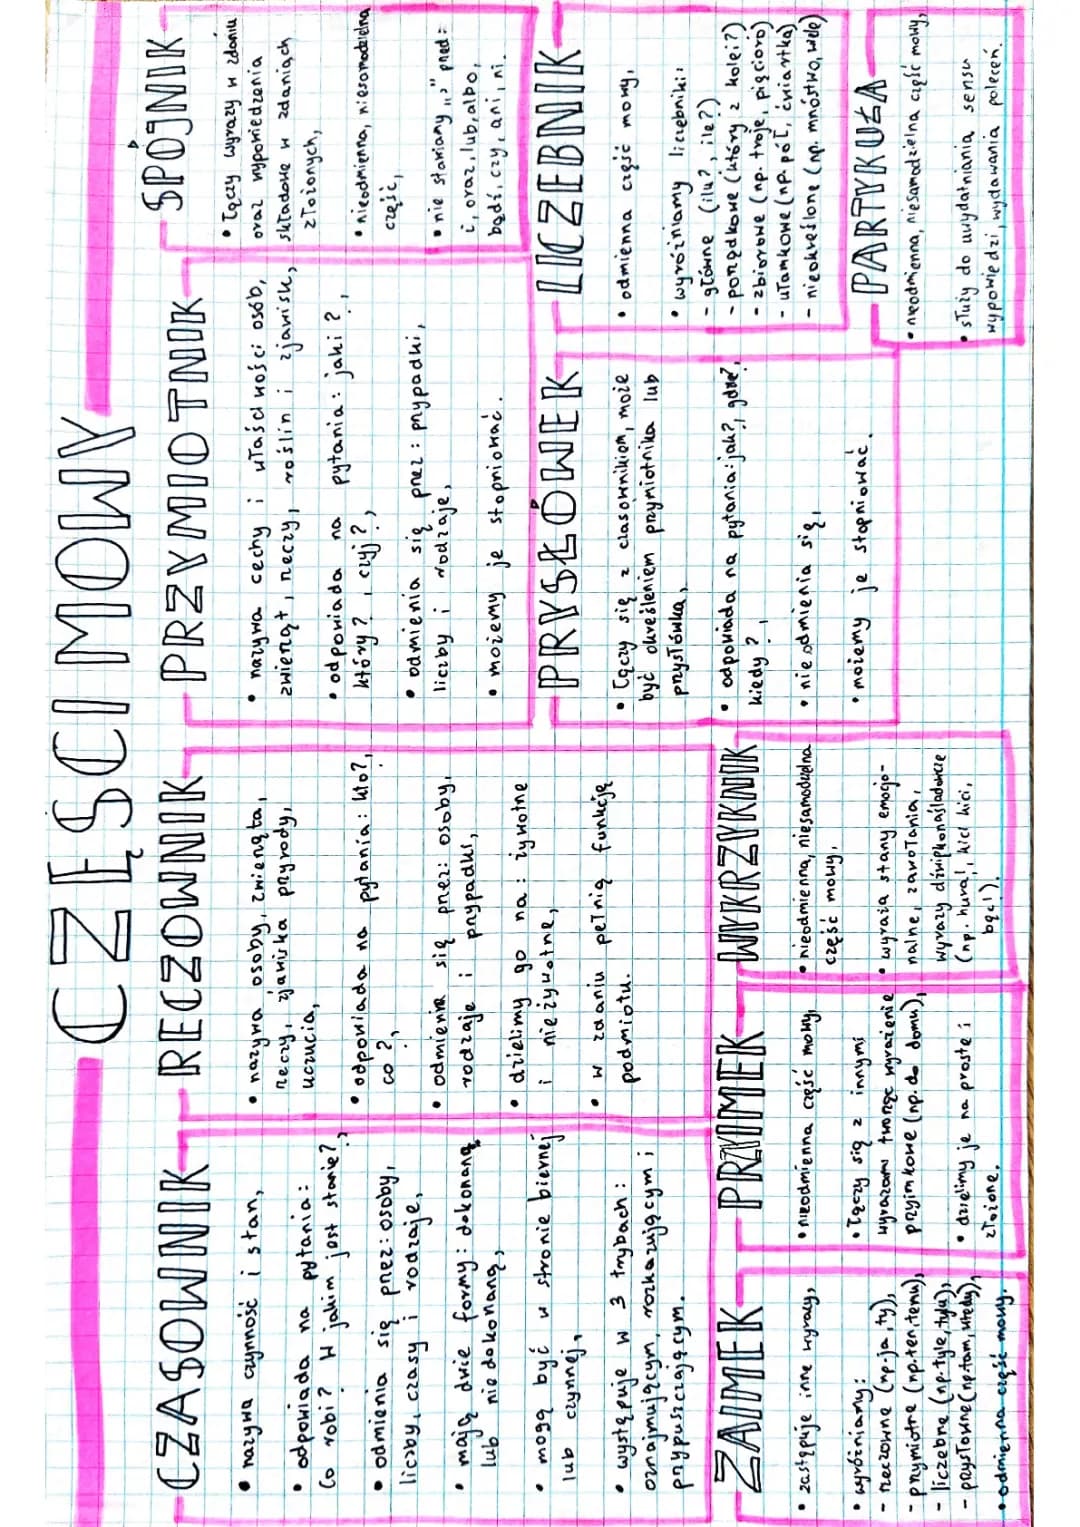 CZĘŚCI MOWY
CZASOWNIK
• nazywa czynność i stan,
• odpowiada na pytania:
Co robi? W jakim jest stanie?,
• odmienia się przez: osoby,
liczby, czasy i rodzaje,
• mają dwie formy: dokonaną
lub niedokonaną,
• mogą być w stronie biernej
lub czynnej,
• występuje w 3 trybach:
oznajmującym, rozkazującym i
przypuszczającym.
RECZOWNIK
• nazywa osoby, zwierzęta,
rzeczy, zjawiska przyrody,
uczucia,
• odpowiada na pytania: kto?,
co?,
• odmienia się przez: osoby,
rodzaje i przypadki,
• dzielimy go na: żywotne
i nieżywotne,
• w zdaniu pełnią funkcję
podmiotu.
PRZYMIOTNIK
• nazywa cechy i właściwości osób,
zwierząt, rzeczy, roślin i zjawisk,
• odpowiada na pytania: jaki?,
który?, czyj?,
• odmienia się przez: przypadki,
liczby i rodzaje,
• możemy je stopniować.
SPÓJNIK
• łączy wyrazy w zdaniu
oraz wypowiedzenia
składowe w zdaniach
złożonych,
• nieodmienna, niesamodzielna
część,
• nie stawiamy „," przed:
i, oraz, lub, albo,
bądź, czy, ani, ni.
ZAIMEK
• zastępuje inne wyrazy,
• wyróżniamy:
- rzeczowne (np. ja, ty),
- przymiotne (np. ten, temu),
- liczebne (np. tyle, tylu),
- przysłowne (np. tam, wtedy),
• odmienna część mowy.
PRZYIMEK
• nieodmienna część mowy,
• łączy się z innymi
wyrazami tworząc wyrażenie
przyimkowe (np. do domu),
• dzielimy je na proste i
złożone.
WYKRZYKNIK
• nieodmienna, niesamodzielna
część mowy,
• wyraża stany emocjo-
nalne, zawołania,
wyrazy dźwiękonaśladowcze
(np. hura!, kici kici,
bęc!).
PRYSŁÓWEK
• łączy się z czasownikiem, może
być określeniem przymiotnika lub
przysłówka,
• odpowiada na pytania: jak?, gdzie?,
kiedy?,
• nie odmienia się,
• możemy je stopniować.
LICZEBNIK
• odmienna część mowy,
• wyróżniamy liczebniki:
- główne (ilu?, ile?)
- porządkowe (który z kolei?)
- zbiorowe (np. troje, pięcioro)
- ułamkowe (np. pół, ćwiartka)
- nieokreślone (np. mnóstwo, wiele)
PARTYKUŁA
• nieodmienna, niesamodzielna część mowy,
• służy do uwydatniania sensu
wypowiedzi, wydawania poleceń.